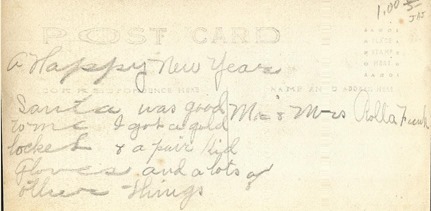 1.00
POST CARD
A Happy New Year
CORRESPONDENCE HERE
NAME AND ADDRESS HERE
Santa was good
to me I got a gold
locket & a pair kid
Gloves and a lots of
other things
Mr & Mrs Rolla Funk